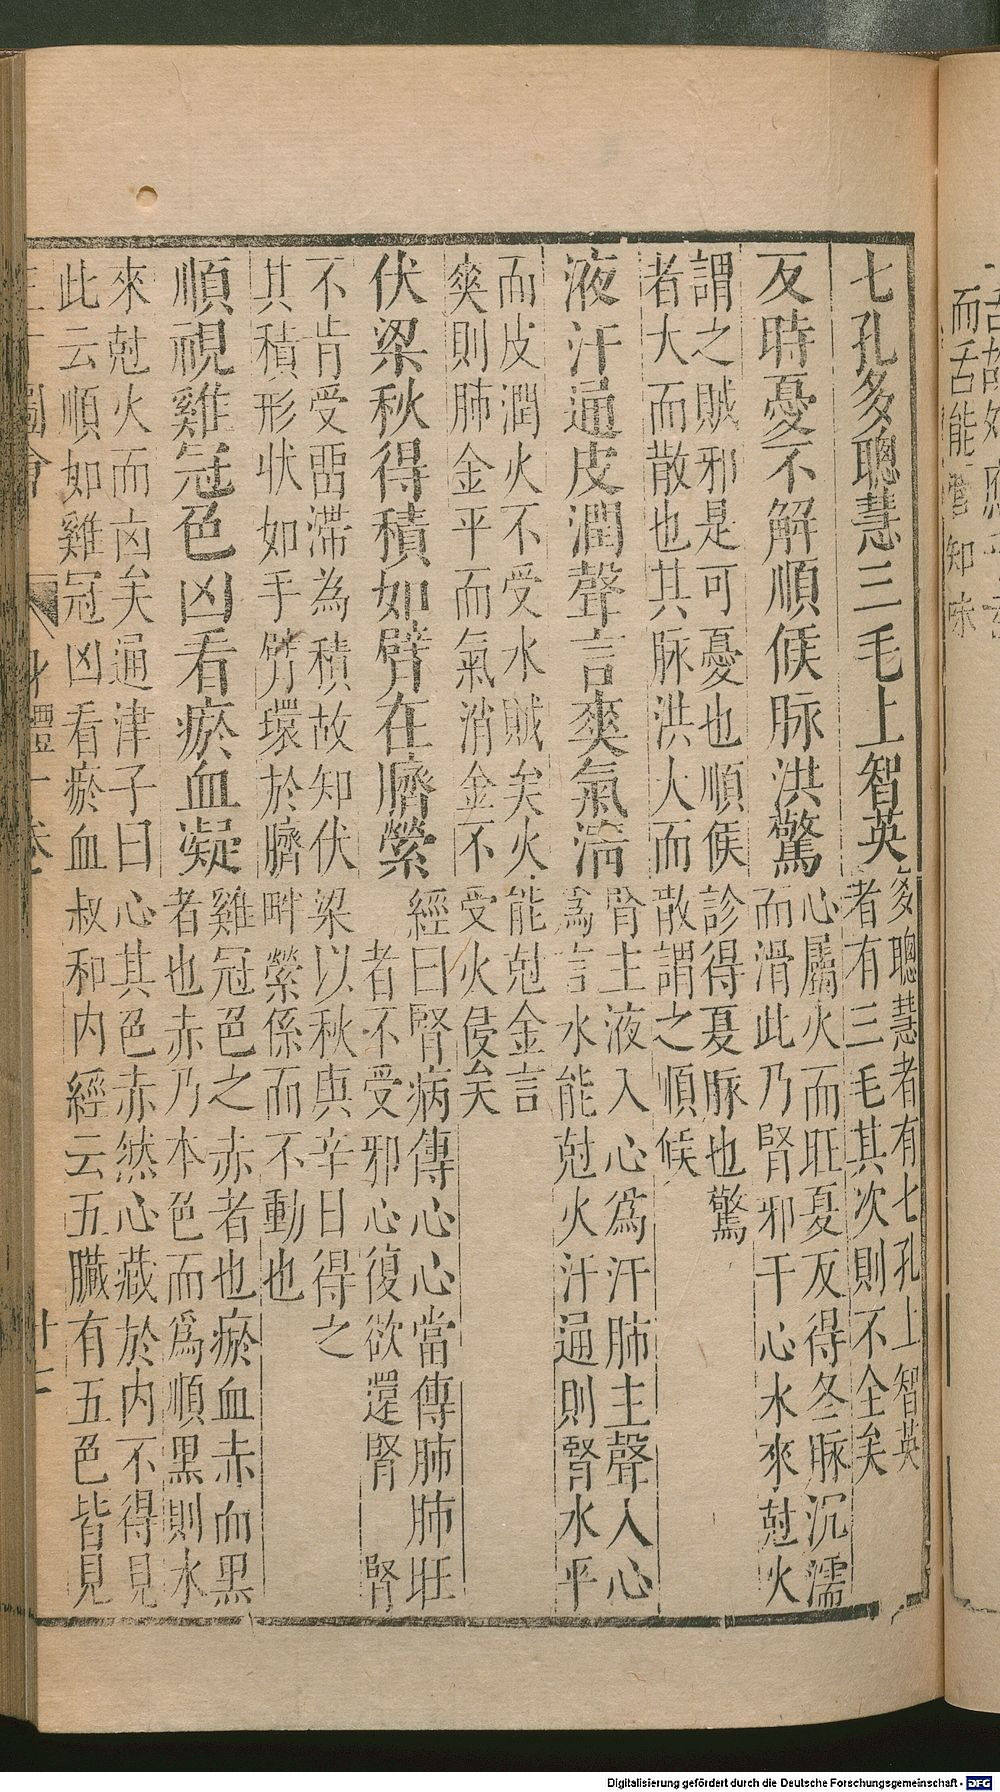 七孔多聰慧三毛上智英
多聰慧者有七孔上智英
者有三毛其次則不全矣
反時憂不解順候脉洪驚
心屬火而旺夏反得冬脉沉濡
而滑此乃腎邪干心水來尅火
謂之賊邪是可憂也順候診得夏脉也驚
者大而散也其脉洪大而散謂之順候
液汗通皮潤聲言爽氣淸
腎主液入心爲汗肺主聲入心
爲言水能尅火汗通則腎水平
而皮潤火不受水賊矣火能尅金言
爽則肺金平而氣消金不受火侵矣
伏梁秋得積如臂在臍縈
經曰腎病傳心心當傳肺肺旺
者不受邪心復欲還腎 腎
不肯受畱滯為積故知伏梁以秋與辛日得之
其積形狀如手臂環於臍畔縈係而不動也
順視雞冠色凶看瘀血凝
雞冠色之赤者也瘀血赤血黑
者也赤乃本色而爲順黑則水
來尅火而凶矣通津子曰心其色赤然心藏於內不得見
此云順如雞冠凶看瘀血叔和內經云五臟有五色皆見
圖會
身體一卷
廿七
而舌能知味
Digitalisierung gefördert durch die Deutsche Forschungsgemeinschaft - DFG